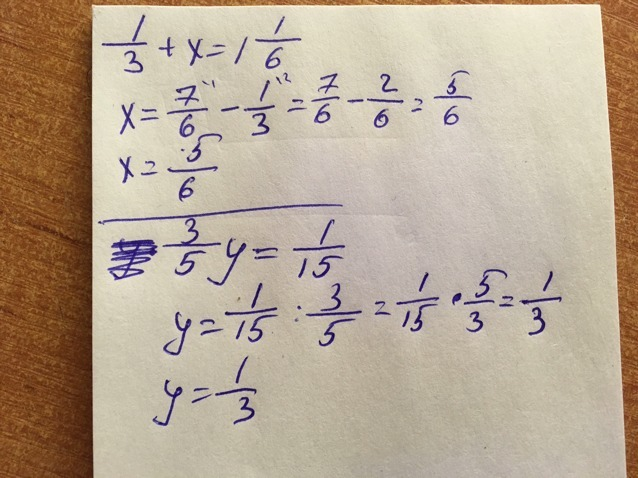 1/3 + x = 1 1/6
x = 7/6 ¹¹ - 1/3 ¹² = 7/6 - 2/6 = 5/6
x = 5/6
3/5 y = 1/15
y = 1/15 : 3/5 = 1/15 · 5/3 = 1/3
y = 1/3